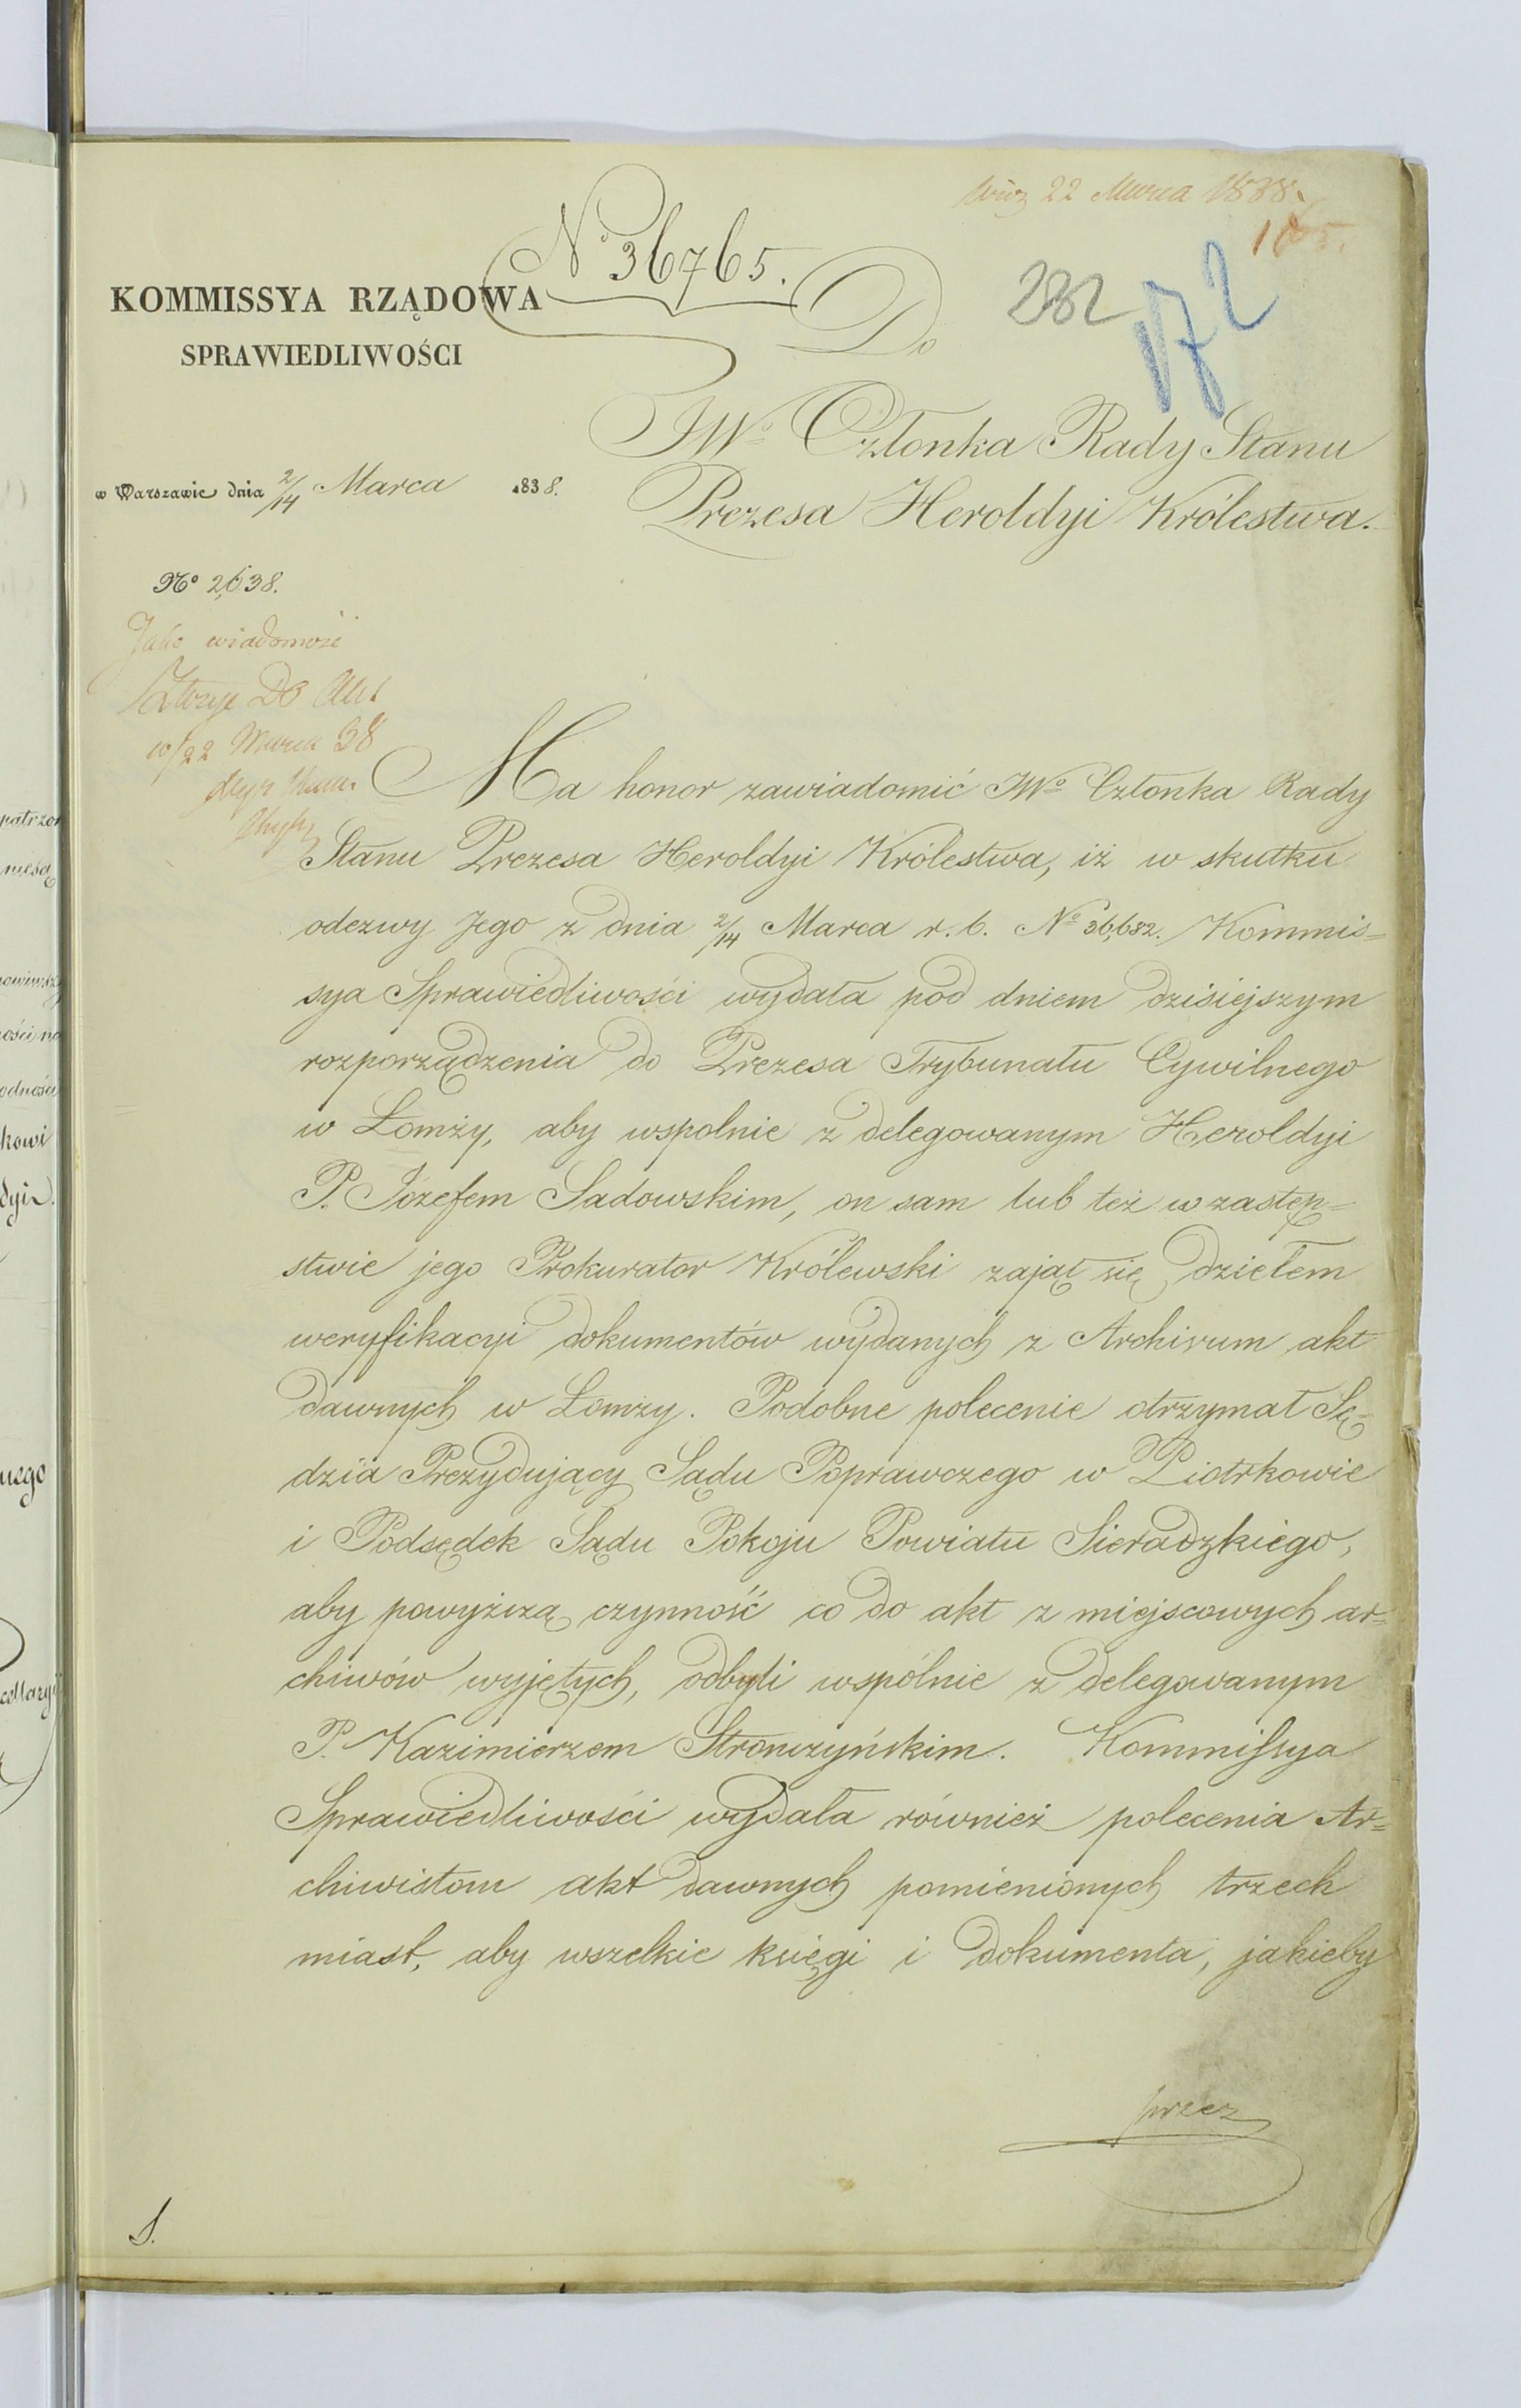 22 Marca 1838.
N° 36765.
282
172
KOMMISSYA RZĄDOWA
SPRAWIEDLIWOŚCI
Do
JWo Członka Rady Stanu
Prezesa Heroldyi Królestwa.
w Warszawie dnia 2/14 Marca 1838.
No 2,638.
Jako wiadomość
Do Akt
22 Marca 38
Ma honor zawiadomić JWo Członka Rady
Stanu Prezesa Heroldyi Królestwa, iż w skutku
odezwy Jego z dnia 2/14 Marca r. b. No 36,632. Kommis=
sya Sprawiedliwości wydała pod dniem dzisiejszym
rozporządzenia do Prezesa Trybunału Cywilnego
w Łomży, aby wspolnie z delegowanym Heroldyi
P. Józefem Sadowskim, on sam lub też w zastęp=
stwie jego Prokurator Królewski zajął się dziełem
weryfikacyi dokumentów wydanych z Archivum akt
dawnych w Łomży. Podobne polecenie otrzymał Sę=
dzia Prezydujący Sądu Poprawczego w Piotrkowie
i Podsędek Sądu Pokoju Powiatu Sieradzkiego,
aby powyższą czynność co do akt z miejscowych ar=
chiwów wyjętych, odbyli wspólnie z delegowanym
P. Kazimierzem Stronczyńskim. Kommissya
Sprawiedliwości wydała również polecenia Ar=
chiwistom akt dawnych pomienionych trzech
miast, aby wszelkie księgi i dokumenta, jakieby
przez
S.